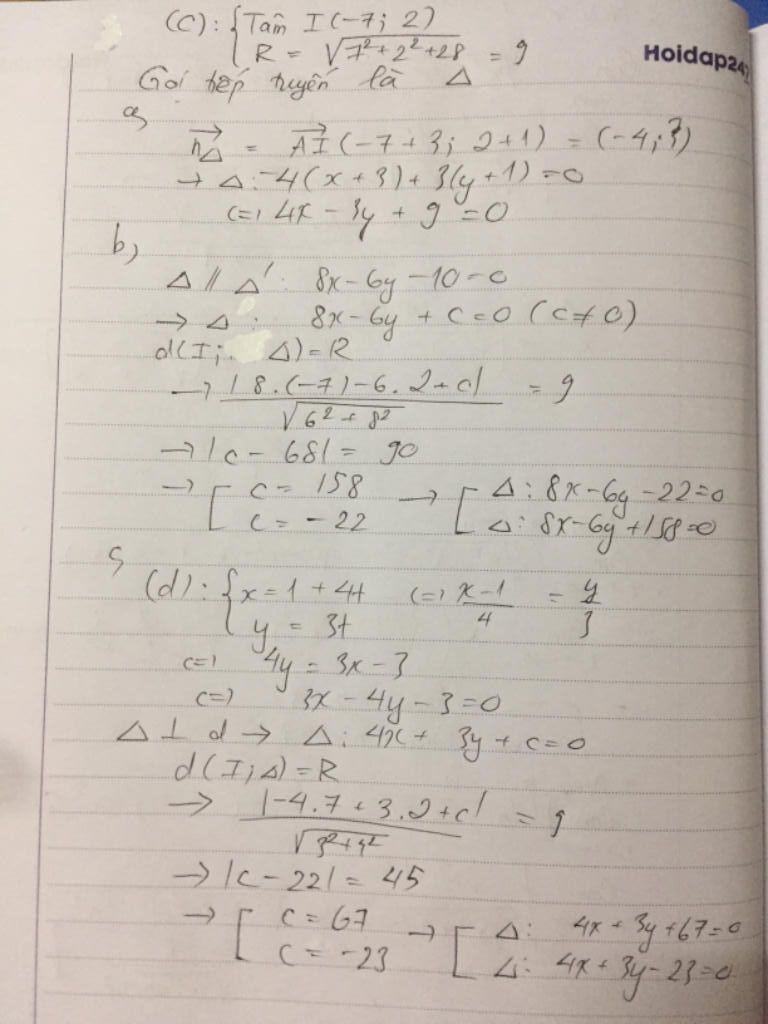 (C): { Tâm I(-7; 2)
R = √(7²+2²+28) = 9
Hoidap247
Gọi tiếp tuyến là Δ
a)
n→Δ = AI→ (-7+3; 2+1) = (-4; 3)
→ Δ: -4(x+3) + 3(y+1) = 0
(=) 4x - 3y + 9 = 0
b)
Δ // Δ': 8x - 6y - 10 = 0
→ Δ: 8x - 6y + c = 0 (c ≠ 0)
d(I; Δ) = R
→ |8.(-7) - 6.2 + c| / √(6² + 8²) = 9
→ |c - 68| = 90
→ [ c = 158 → [ Δ: 8x - 6y - 22 = 0
c = -22 Δ: 8x - 6y + 158 = 0
c)
(d): { x = 1 + 4t (=) (x-1)/4 = y/3
y = 3t
(=) 4y = 3x - 3
(=) 3x - 4y - 3 = 0
Δ ⊥ d → Δ: 4x + 3y + c = 0
d(I; Δ) = R
→ |-4.7 + 3.2 + c| / √(3²+4²) = 9
→ |c - 22| = 45
→ [ c = 67 → [ Δ: 4x + 3y + 67 = 0
c = -23 Δ: 4x + 3y - 23 = 0